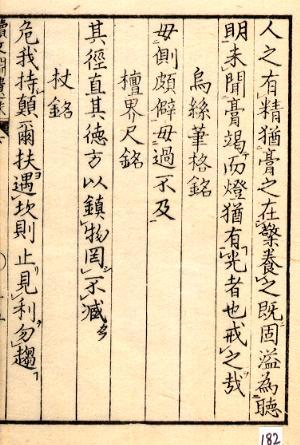 人之有精猶膏之在檠養之既固溢為聽
明未聞膏竭而燈猶有光者也戒之哉
烏絲筆格銘
毋側頗僻毋過不及
檀界尺銘
其徑直其德方以鎮物罔不減
杖銘
危我持顛爾扶遇坎則止見利勿趨
182